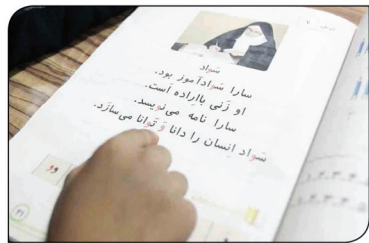 سواد
سارا سوادآموز بود.
او زنی بااراده است.
سارا نامه می‌نویسد.
سواد انسان را دانا و توانا می‌سازد.
و و